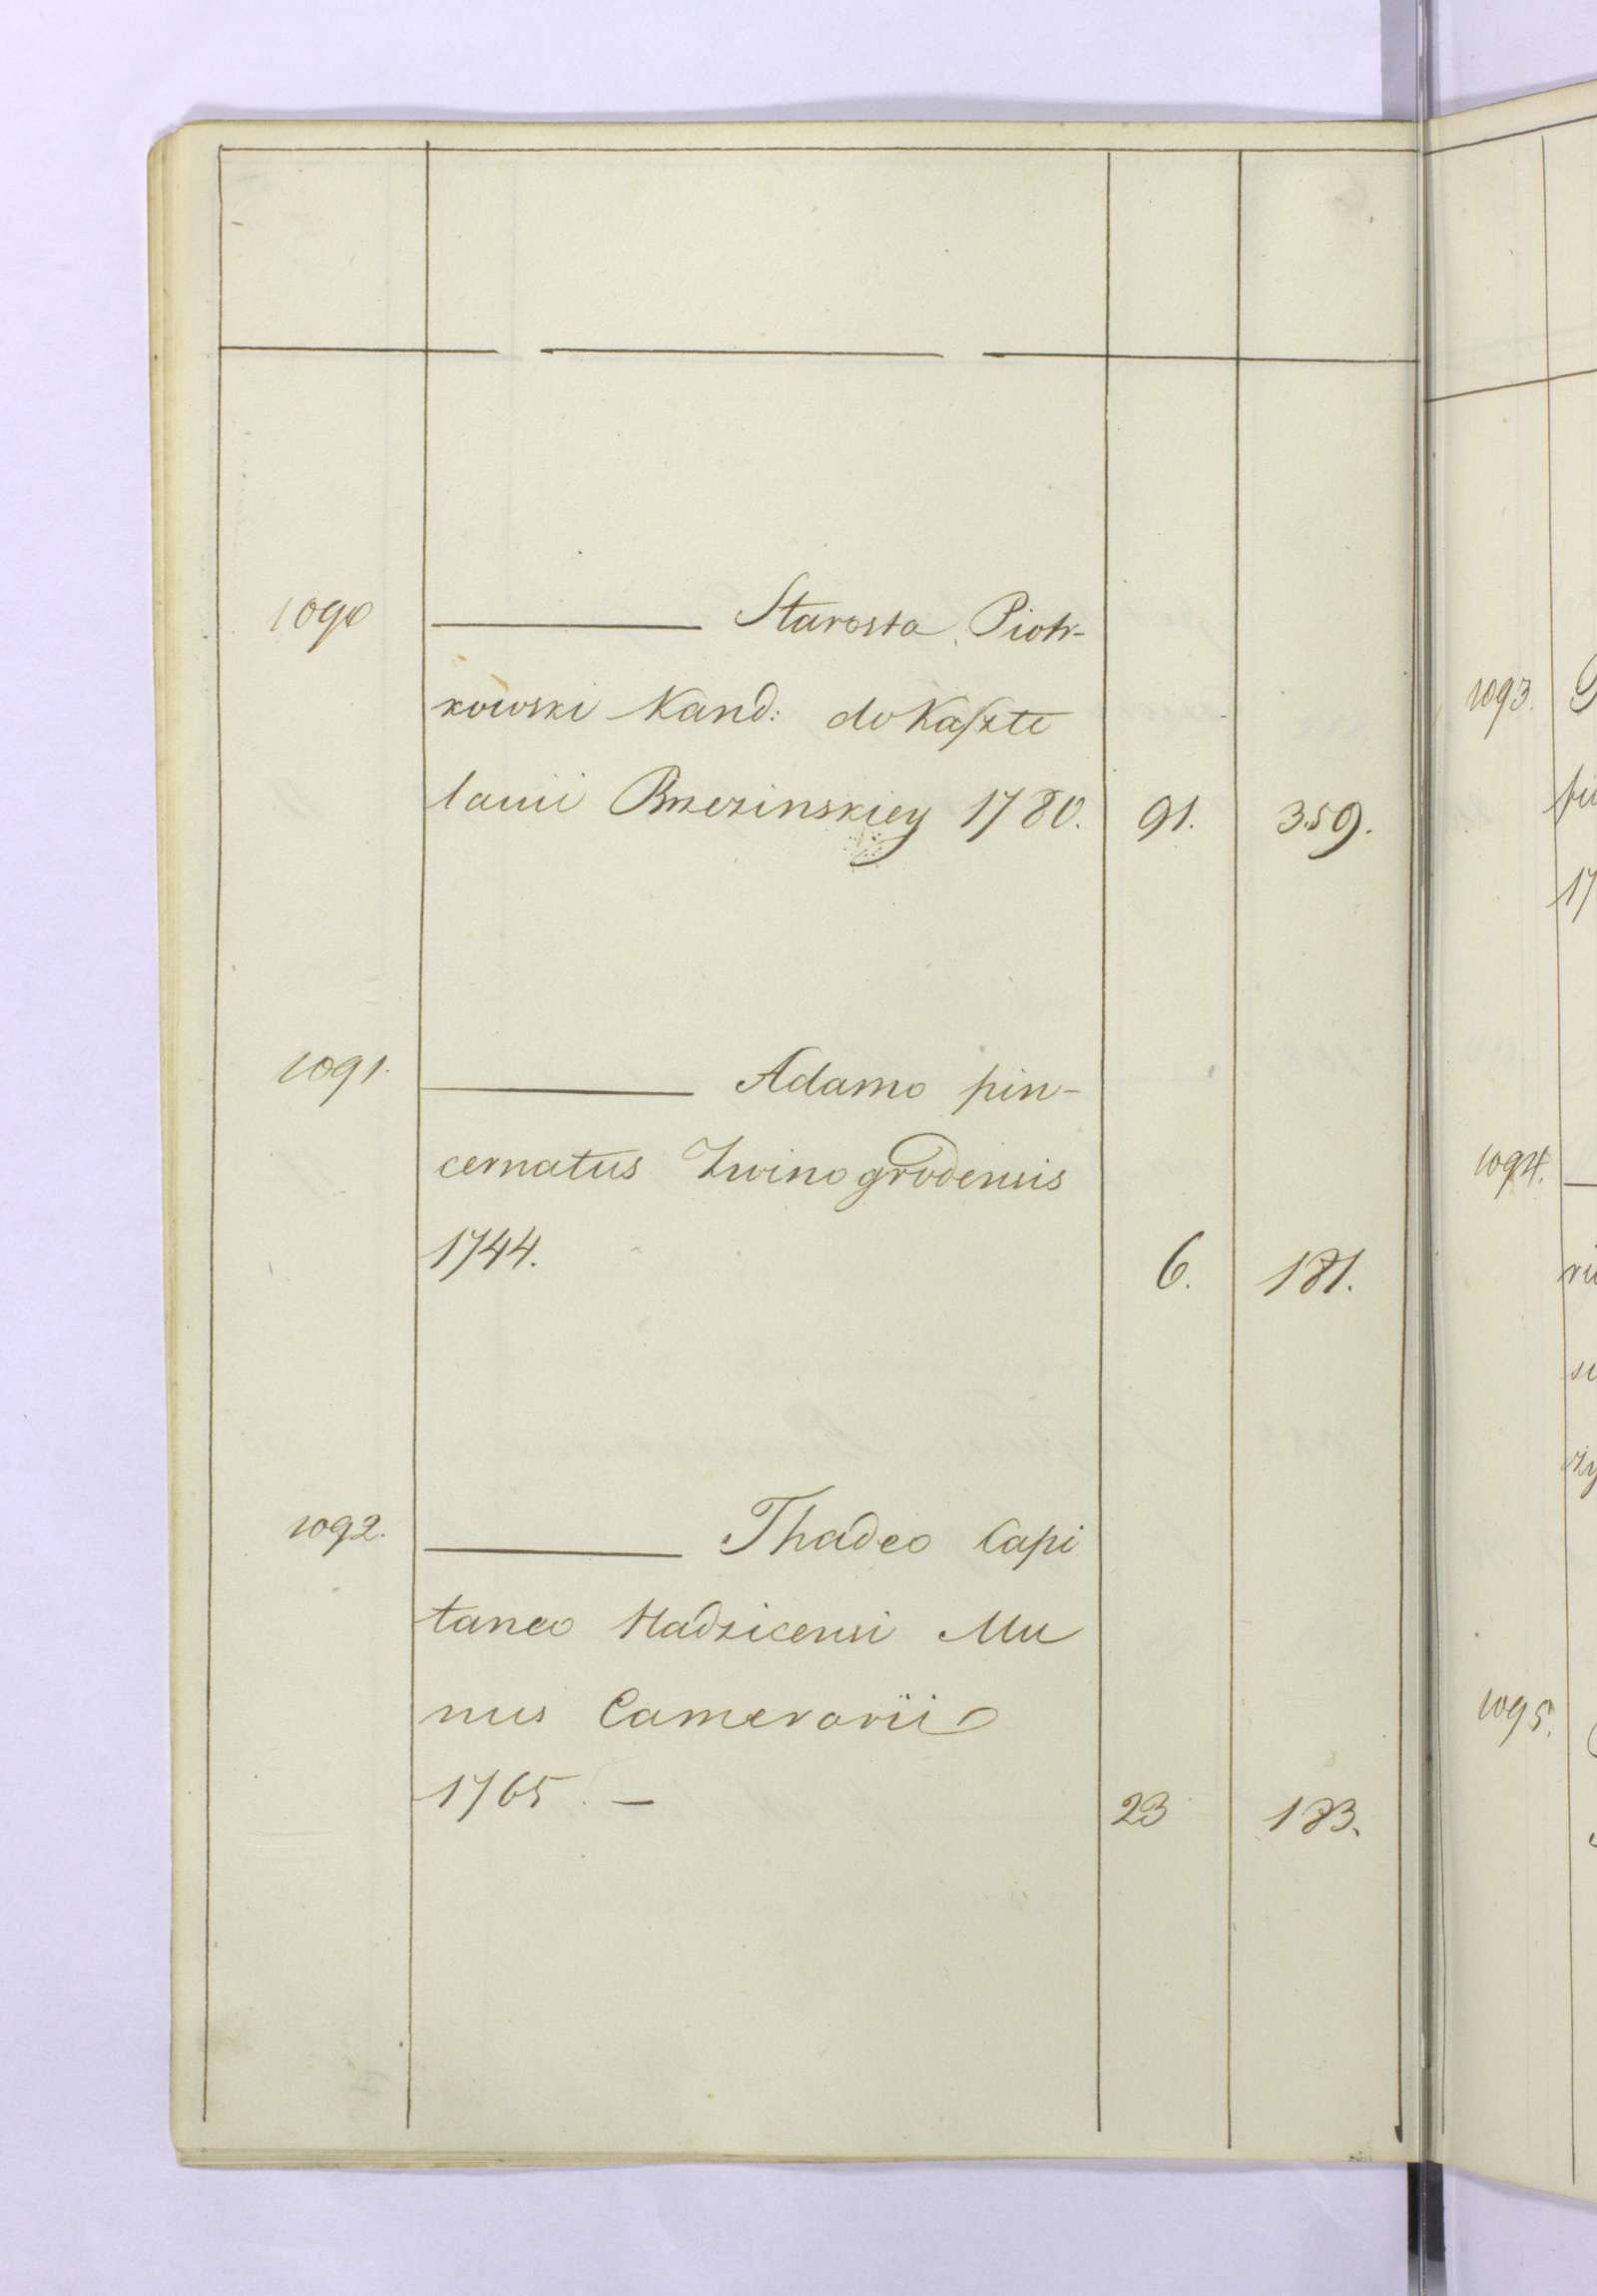 1090 ——— Starosta Piotr-
kowski Kand: do Kaszte
lanii Brzezinskiey 1780. 91. 359.
1091. ——— Adamo pin-
cernatus Zwinogrodensis
1744. 6. 181.
1092. ——— Thadeo Capi
taneo Hadzicensi Mu
nus Camerarii
1765. — 23 183.
1093.
17
1094.
1095.